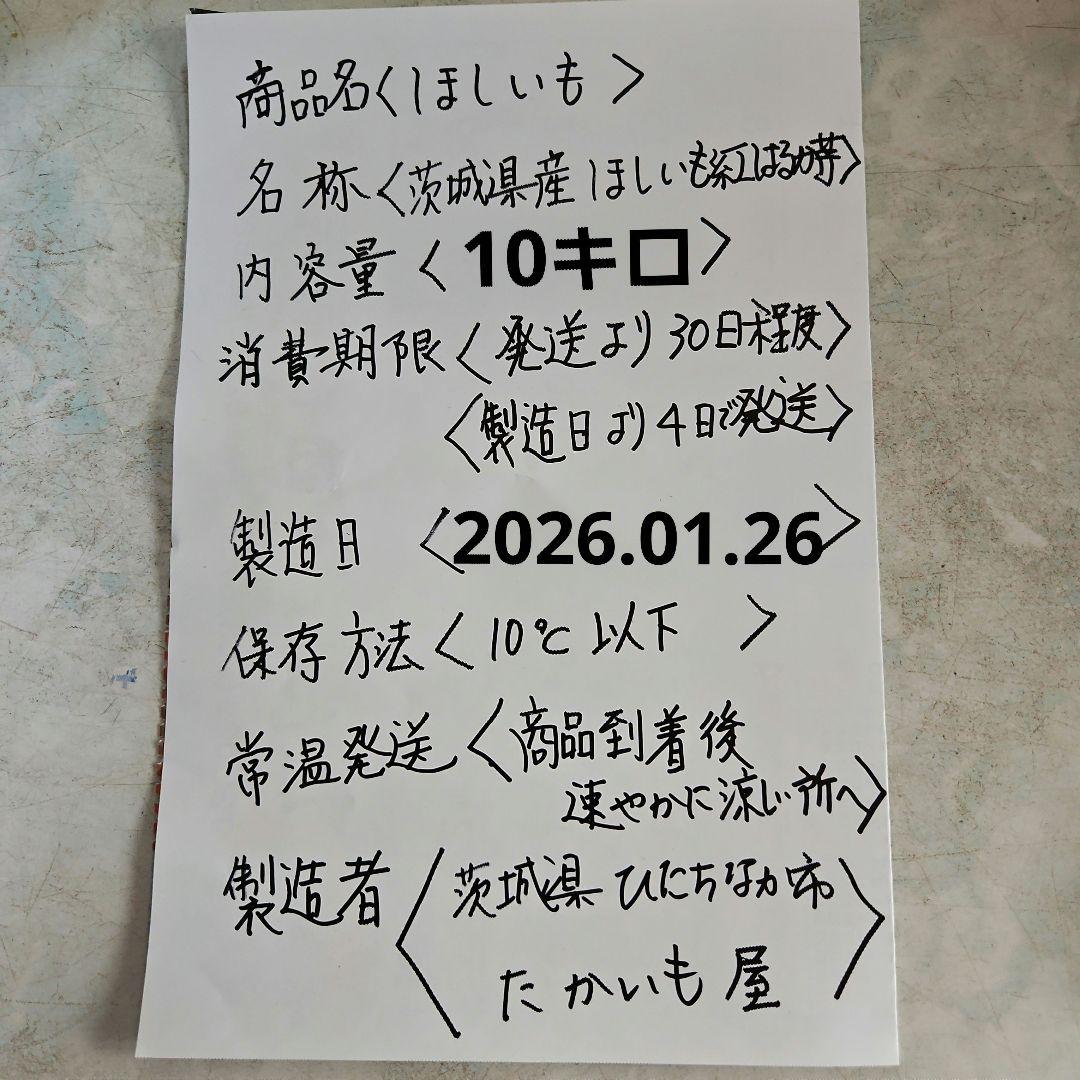 商品名〈ほしいも〉
名称〈茨城県産ほしいも紅はるか芋〉
内容量〈10キロ〉
消費期限〈発送より30日程度〉
〈製造日より4日で発送〉
製造日〈2026.01.26〉
保存方法〈10℃以下〉
常温発送〈商品到着後
速やかに涼しい所へ〉
製造者〈茨城県ひたちなか市
たかいも屋〉